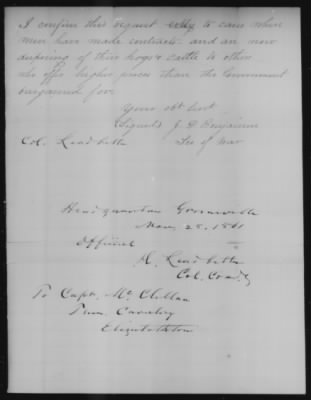 I confine this request only to cases where
men have made contracts and are now
disposing of their hogs & cattle to others
who offer higher prices than the Government
bargained for.
Your obt Servt
(Signed) J. P. Benjamin
Col. Leadbetter Sec of War
Headquarters Greenville
Nov 28. 1861
Official
D. Leadbetter
Col. Comdg
To Capt. McClellan
Tenn Cavalry
Elizabethton